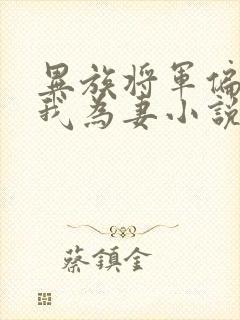 異族将軍偏
我為妻小說
蔡鎮金